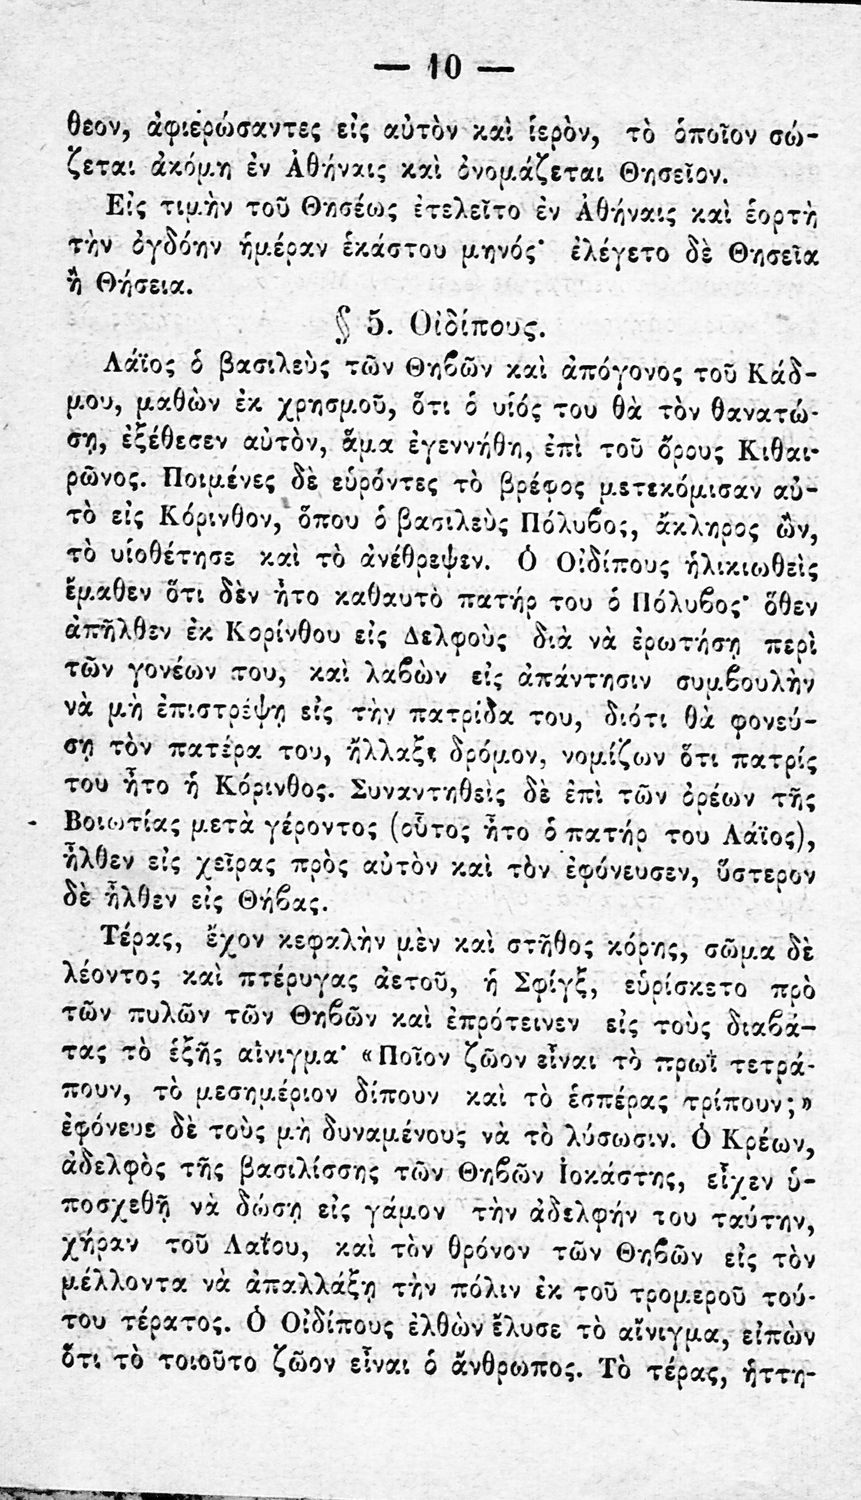 — 10 —
θεον, ἀφιερώσαντες εἰς αὐτὸν καὶ ἱερὸν, τὸ ὁποῖον σώ-
ζεται ἀκόμη ἐν Ἀθήναις καὶ ὀνομάζεται Θησεῖον.
Εἰς τιμὴν τοῦ Θησέως ἐτελεῖτο ἐν Ἀθήναις καὶ ἑορτὴ
τὴν ὀγδόην ἡμέραν ἑκάστου μηνός· ἐλέγετο δὲ Θησεῖα
ἢ Θήσεια.
§ 5. Οἰδίπους.
Λάϊος ὁ βασιλεὺς τῶν Θηϐῶν καὶ ἀπόγονος τοῦ Κάδ-
μου, μαθὼν ἐκ χρησμοῦ, ὅτι ὁ υἱός του θὰ τὸν θανατώ-
σῃ, ἐξέθεσεν αὐτὸν, ἅμα ἐγεννήθη, ἐπὶ τοῦ ὄρους Κιθαι-
ρῶνος. Ποιμένες δὲ εὑρόντες τὸ βρέφος μετεκόμισαν αὐ-
τὸ εἰς Κόρινθον, ὅπου ὁ βασιλεὺς Πόλυϐος, ἄκληρος ὢν,
τὸ υἱοθέτησε καὶ τὸ ἀνέθρεψεν. Ὁ Οἰδίπους ἡλικιωθεὶς
ἔμαθεν ὅτι δὲν ἦτο καθαυτὸ πατήρ του ὁ Πόλυϐος· ὅθεν
ἀπῆλθεν ἐκ Κορίνθου εἰς Δελφοὺς διὰ νὰ ἐρωτήσῃ περὶ
τῶν γονέων του, καὶ λαϐὼν εἰς ἀπάντησιν συμϐουλὴν
νὰ μὴ ἐπιστρέψῃ εἰς τὴν πατρίδα του, διότι θὰ φονεύ-
σῃ τὸν πατέρα του, ἤλλαξε δρόμον, νομίζων ὅτι πατρίς
του ἦτο ἡ Κόρινθος. Συναντηθεὶς δὲ ἐπὶ τῶν ὀρέων τῆς
Βοιωτίας μετὰ γέροντος (οὗτος ἦτο ὁ πατήρ του Λάϊος),
ἦλθεν εἰς χεῖρας πρὸς αὐτὸν καὶ τὸν ἐφόνευσεν, ὕστερον
δὲ ἦλθεν εἰς Θήϐας.
Τέρας, ἔχον κεφαλὴν μὲν καὶ στῆθος κόρης, σῶμα δὲ
λέοντος καὶ πτέρυγας ἀετοῦ, ἡ Σφίγξ, εὑρίσκετο πρὸ
τῶν πυλῶν τῶν Θηϐῶν καὶ ἐπρότεινεν εἰς τοὺς διαϐά-
τας τὸ ἑξῆς αἴνιγμα· «Ποῖον ζῶον εἶναι τὸ πρωῒ τετρά-
πουν, τὸ μεσημέριον δίπουν καὶ τὸ ἑσπέρας τρίπουν;»
ἐφόνευε δὲ τοὺς μὴ δυναμένους νὰ τὸ λύσωσιν. Ὁ Κρέων,
ἀδελφὸς τῆς βασιλίσσης τῶν Θηϐῶν Ἰοκάστης, εἶχεν ὑ-
ποσχεθῆ νὰ δώσῃ εἰς γάμον τὴν ἀδελφήν του ταύτην,
χήραν τοῦ Λαΐου, καὶ τὸν θρόνον τῶν Θηϐῶν εἰς τὸν
μέλλοντα νὰ ἀπαλλάξῃ τὴν πόλιν ἐκ τοῦ τρομεροῦ τού-
του τέρατος. Ὁ Οἰδίπους ἐλθὼν ἔλυσε τὸ αἴνιγμα, εἰπὼν
ὅτι τὸ τοιοῦτο ζῶον εἶναι ὁ ἄνθρωπος. Τὸ τέρας, ἡττη-